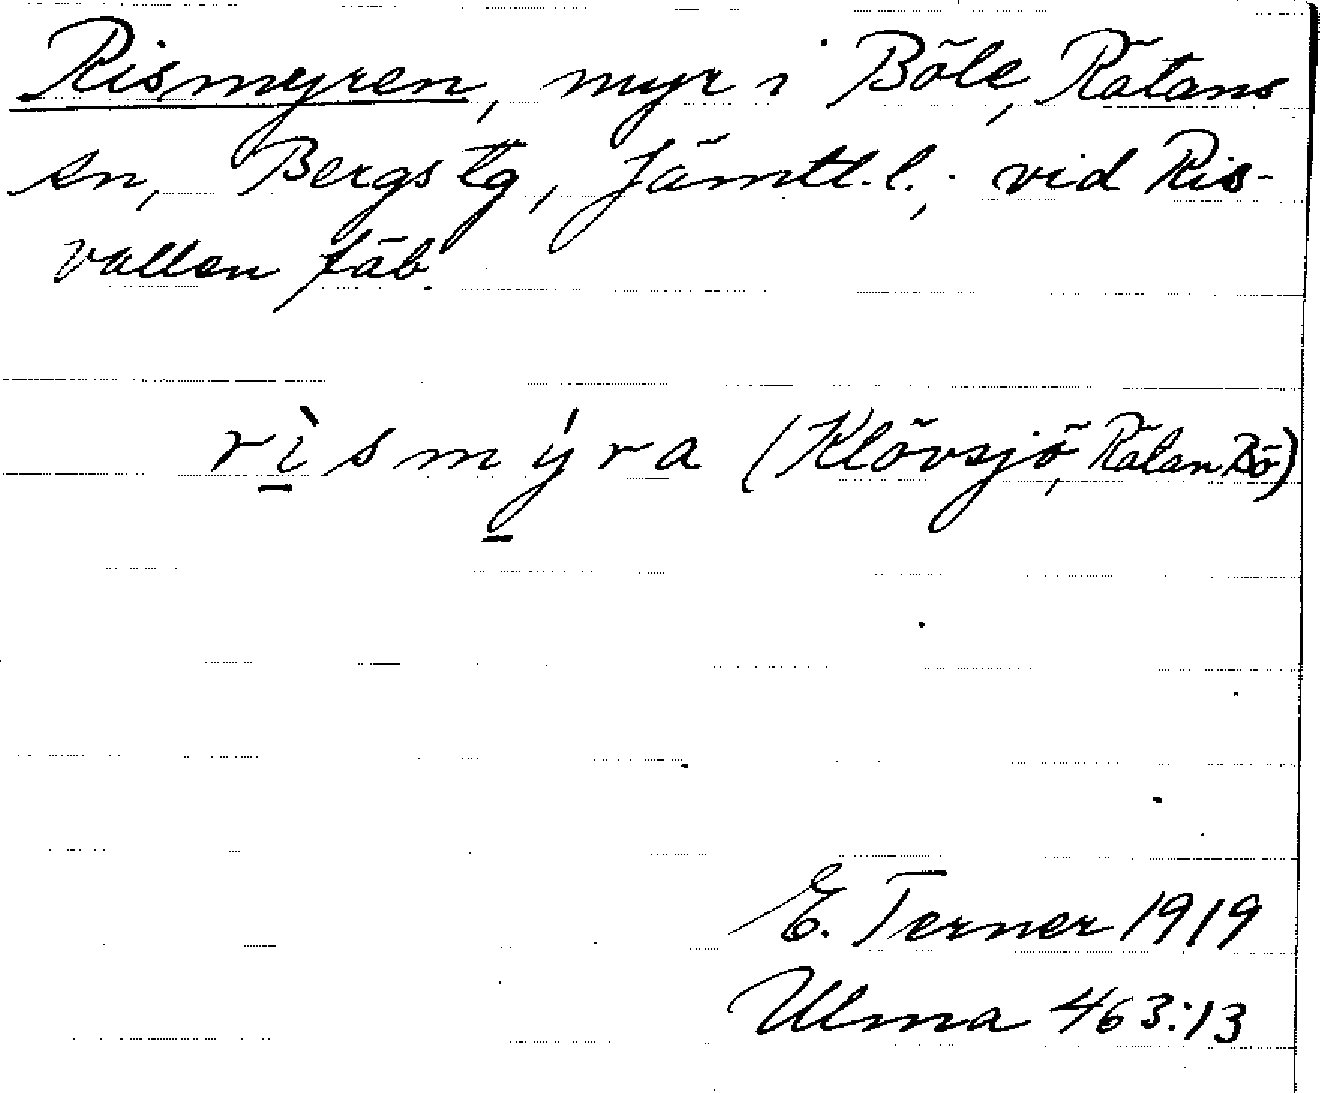 Rismyren, myr i Böle, Rätans
sn, Bergs tg, Jämtl. l.; vid Ris-
vallen fäb.
rìsmýra (Klövsjö, Rätan Bö)
E. Terner 1919
Ulma 463:13